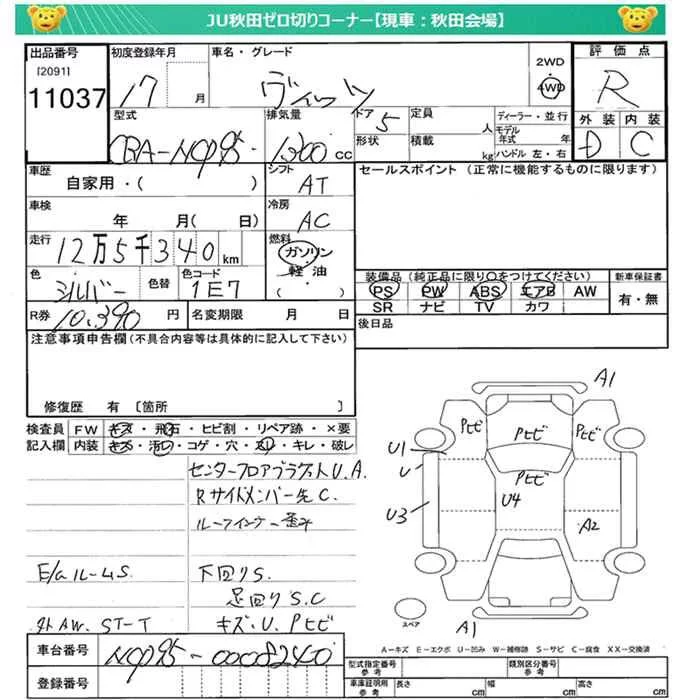 JU秋田ゼロ切りコーナー【現車：秋田会場】
出品番号 初度登録年月 車名・グレード 2WD 評価点
[2091] 11037 17 月 ヴィッツ 4WD R
型式 排気量 ドア 5 定員 人 ディーラー・並行 外装 内装
CBA-NCP95・ 1300 cc 形状 積載 kg モデル年式 年 ハンドル 左・右 D C
車歴 シフト セールスポイント (正常に機能するものに限ります)
自家用・( ) AT
車検 冷房
年 月(日) AC
走行 燃料
12万5千340km ガソリン・軽油
色 色替 色コード ( ) 装備品 (純正品に限り○をつけてください) 新車保証書
シルバー 1E7 PS PW ABS エアB AW 有・無
SR ナビ TV カワ
R券 10,390 円 名変期限 月 日 後日品
注意事項申告欄 (不具合内容等は具体的に記入して下さい)
修復歴 有 [箇所 ]
検査員 FW キズ・飛石・ヒビ割・リペア跡・×要
記入欄 内装 キズ・汚レ・コゲ・穴・スレ・キレ・破レ
センターフロアブラケットU.A.
Rサイドメンバー先C.
ルーフインナー歪み
E/aルームS. 下回りS.
足回りS.C
外AW. ST-T キズ.U.Pヒビ
A1
Pヒビ Pヒビ Pヒビ
U1
U Pヒビ
U4
U3 A2
スペア A1
A－キズ E－エクボ U－凹み W－補修跡 S－サビ C－腐食 XX－交換済
車台番号 NCP95-0008240
登録番号
型式指定番号 参考 類別区分番号 参考
車庫証明用 参考 長さ cm 幅 cm 高さ cm